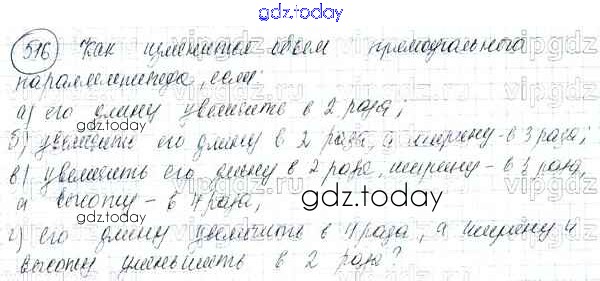 gdz.today
516 Как изменится объем прямоугольного
параллелепипеда, если:
а) его длину увеличить в 2 раза;
gdz.today
б) увеличить его длину в 2 раза, а ширину - в 3 раза;
в) увеличить его длину в 2 раза, ширину - в 3 раза,
а высоту - в 4 раза;
gdz.today
г) его длину увеличить в 4 раза, а ширину и
высоту уменьшить в 2 раза?
gdz.today